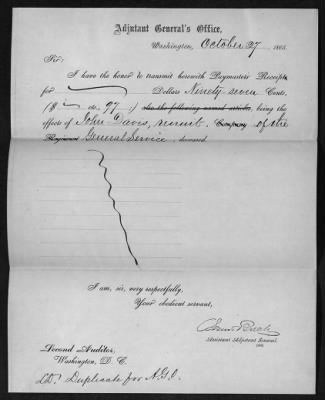 Adjutant General's Office,
Washington, October 27 1865.
Sir:
I have the honor to transmit herewith Paymasters' Receipts
for Dollars Ninety-seven Cents,
($ cts. 97) and the following named articles, being the
effects of John Davis, recruit, Company of the
Regiment General Service, deceased
I am, sir, very respectfully,
Your obedient servant,
Assistant Adjutant General.
Second Auditor,
Washington, D. C.
Duplicate for A.G.O.